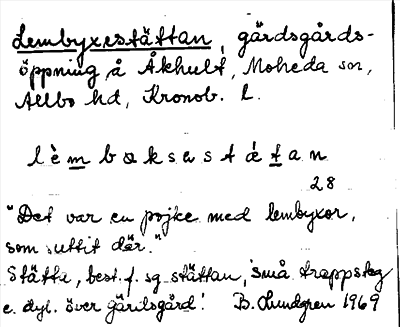 Lembyxestättan, gärdsgårds-
öppning å Åkhult, Moheda sn,
Allbo hd, Kronob. l.
lèmboksastátan
28
"Det var en pojke med lembyxor,
som suttit där."
Stätta, best. f. sg. stättan, 'små trappsteg
e. dyl. över gärdsgård'. B. Lundgren 1969